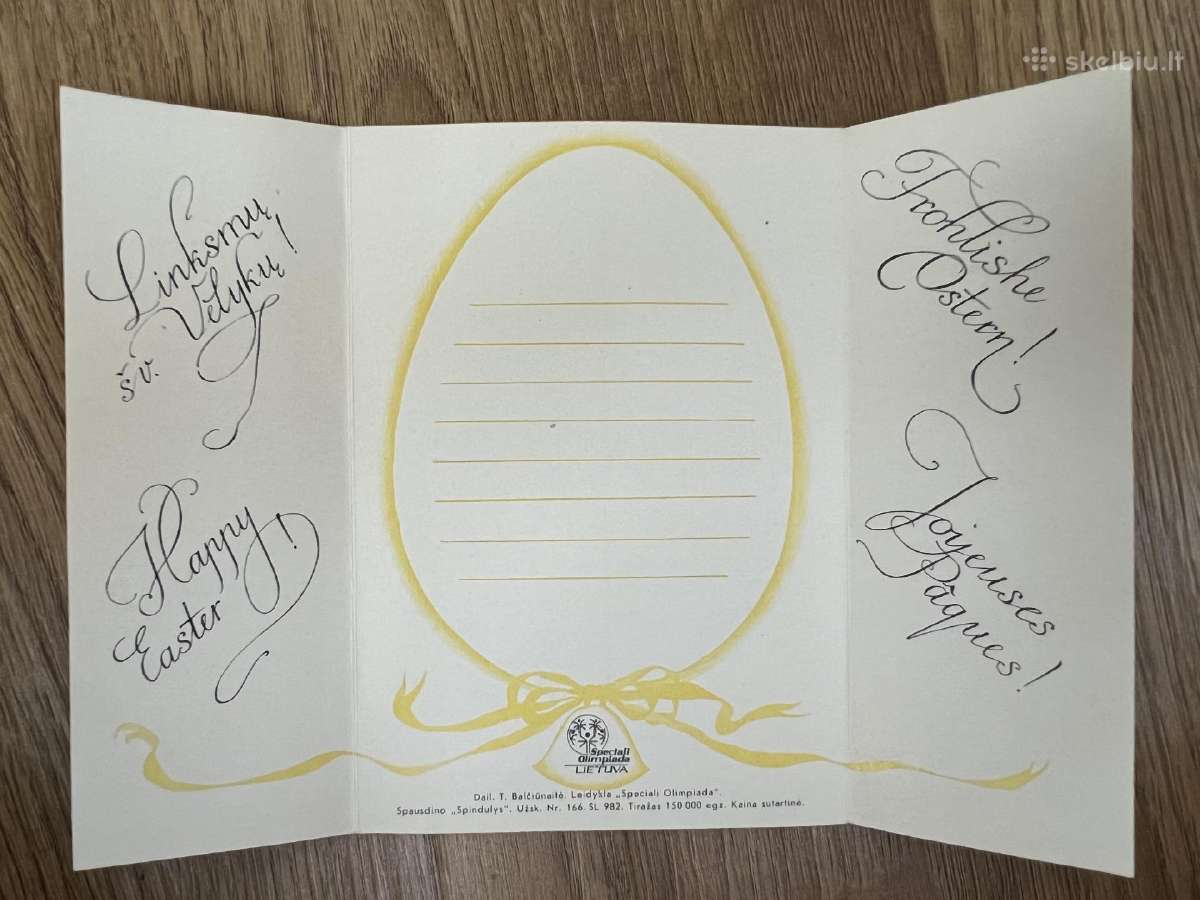 skelbiu.lt
Linksmų
šv. Velykų!
Happy
Easter!
Frohlishe
Ostern!
Joyeuses
Pâques!
Speciali
Olimpiada
LIETUVA
Dail. T. Balčiūnaitė. Leidykla „Speciali Olimpiada".
Spausdino „Spindulys". Užsk. Nr. 166. SL 982. Tiražas 150 000 egz. Kaina sutartinė.